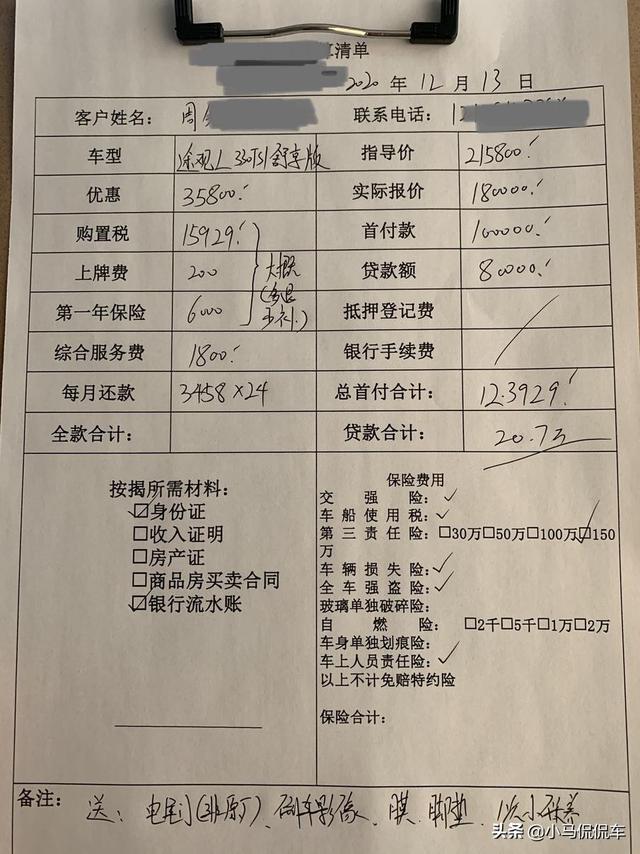 清单
2020 年 12 月 13 日
客户姓名： 周 联系电话：
车型 途观L 330TSI 舒享版 指导价 215800
优惠 35800 实际报价 180000
购置税 15929 首付款 100000
上牌费 200 大概 贷款额 80000
第一年保险 6000 (多退少补) 抵押登记费
综合服务费 1800 银行手续费
每月还款 3458×24 总首付合计： 12.3929
全款合计： 贷款合计： 20.7万
按揭所需材料：
☑身份证
□收入证明
□房产证
□商品房买卖合同
☑银行流水账
保险费用
交强险：✓
车船使用税：✓
第三责任险：□30万□50万□100万☑150
万
车辆损失险：✓
全车强盗险：✓
玻璃单独破碎险：
自燃险： □2千□5千□1万□2万
车身单独划痕险：
车上人员责任险：✓
以上不计免赔特约险
保险合计：
备注： 送：电尾门(非原厂)、倒车影像、膜、脚垫、1次小保养
头条 @小马侃侃车